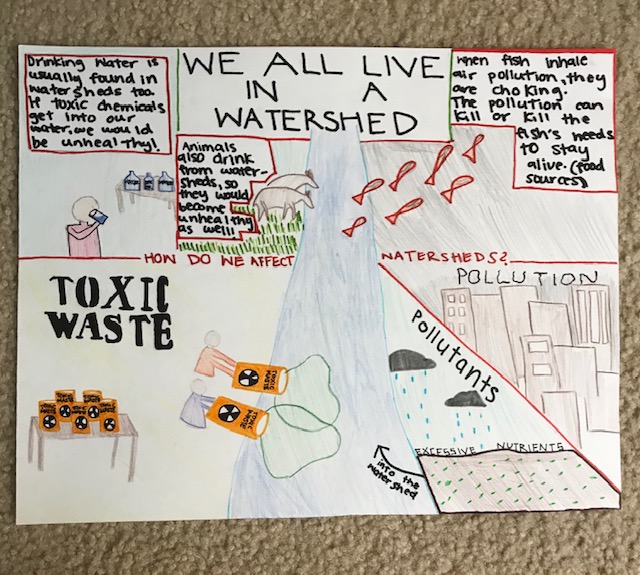 Drinking Water is
usually found in
watersheds too.
If toxic chemicals
get into our
water, we would
be unhealthy!
WE ALL LIVE
IN A
WATERSHED
When fish inhale
air pollution, they
are choking.
The pollution can
kill or kill the
fish's needs
to stay
alive. (food
sources)
Animals
also drink
from water-
sheds, so
they would
become
unhealthy
as well!
HOW DO WE AFFECT WATERSHEDS?
TOXIC
WASTE
TOXIC
WASTE
TOXIC
WASTE
POLLUTION
Pollutants
EXCESSIVE NUTRIENTS
into the
watershed